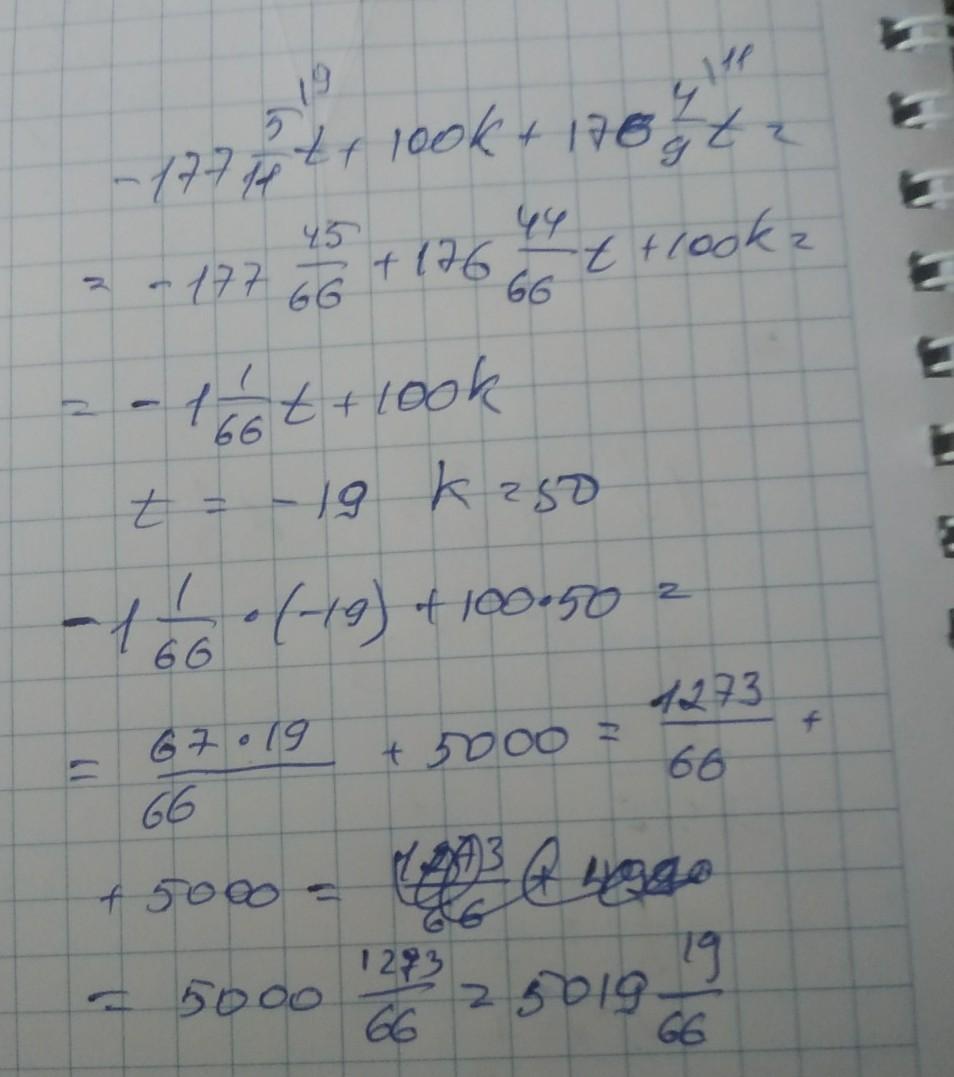 -177 5/11 \9 t + 100k + 176 4/9 \11 t =
= -177 45/66 + 176 44/66 t + 100k =
= -1 1/66 t + 100k
t = -19 k = 50
-1 1/66 · (-19) + 100·50 =
= 67·19/66 + 5000 = 1273/66 +
+ 5000 =
= 5000 1273/66 = 5019 19/66